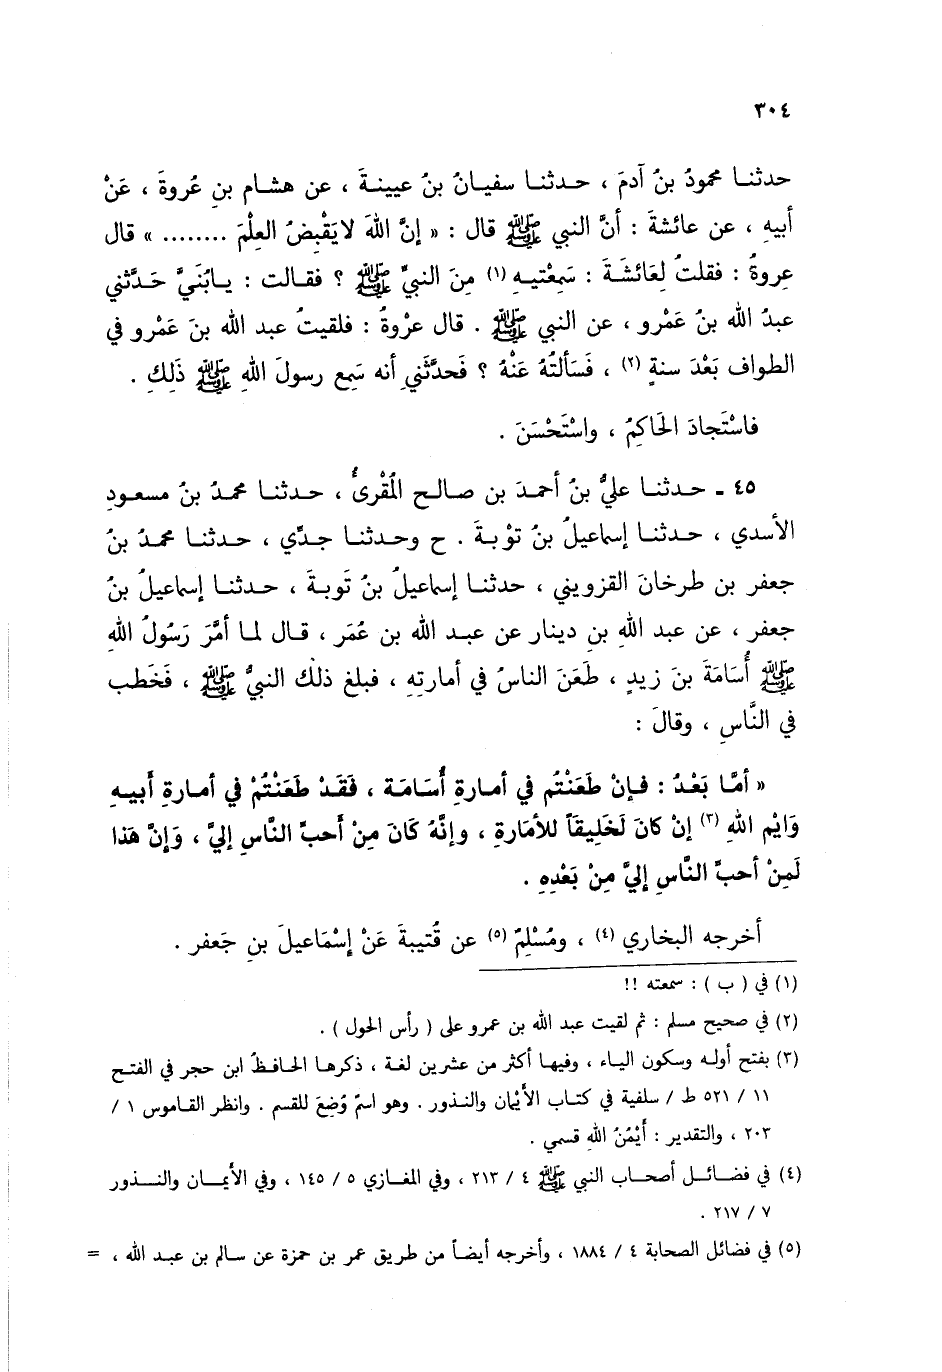 ٣٠٤
حدثنا محمودُ بنُ آدمَ ، حدثنا سفيانُ بنُ عيينةَ ، عن هشام بنِ عُروةَ ، عَنْ
أبيهِ ، عن عائشةَ : أنَّ النبي ﷺ قال : « إنَّ اللهَ لا يَقْبِضُ العِلْمَ ........ » قال
عروةُ : فقلتُ لِعَائشَةَ : سَمِعْتيهِ (١) مِنَ النبيِّ ﷺ ؟ فقالت : يابُنَيَّ حَدَّثني
عبدُ الله بنُ عَمْرو ، عن النبي ﷺ . قال عرْوةُ : فلقيتُ عبد الله بنَ عَمْرو في
الطواف بَعْدَ سنةٍ (٢) ، فَسَألتُهُ عَنْهُ ؟ فَحدَّثَني أنه سَمِع رسولَ اللهِ ﷺ ذَلِكِ .
فاسْتَجادَ الحَاكِمُ ، واسْتَحْسَنَ .
٤٥ ـ حدثنا عليُّ بنُ أحمدَ بن صالح المُقْرئُ ، حدثنا محمدُ بنُ مسعودِ
الأسدي ، حدثنا إسماعيلُ بنُ توْبةَ . ح وحدثنا جدِّي ، حدثنا محمدُ بنُ
جعفر بن طرخانَ القزويني ، حدثنا إسماعيلُ بنُ تَوبةَ ، حدثنا إسماعيلُ بنُ
جعفر ، عن عبد اللهِ بنِ دينار عن عبد الله بن عُمَر ، قال لما أمَّرَ رَسُولُ اللهِ
ﷺ أُسَامَةَ بنَ زيدٍ ، طَعَنَ الناسُ في أمارتِهِ ، فبلغ ذلك النبيُّ ﷺ ، فَخَطب
في النَّاسِ ، وقالَ :
« أمَّا بَعْدُ : فإنْ طَعَنْتُم في أمارةِ أُسَامَة ، فَقَدْ طَعَنْتُمْ في أمارةِ أَبيهِ
وَايْم اللهِ (٣) إنْ كانَ لَخَلِيقَاً للأمَارةِ ، وإنَّهُ كَانَ مِنْ أَحبِّ النَّاسِ إليَّ ، وَإنَّ هَذا
لَمِنْ أحبِّ النَّاسِ إليَّ مِنْ بَعْدِهِ .
أخرجه البخاري (٤) ، ومُسْلِمٌ (٥) عن قُتيبةَ عَنْ إسْمَاعيلَ بنِ جَعفر .
(١) في ( ب ) : سمعته !!
(٢) في صحيح مسلم : ثم لقيت عبد الله بن عمرو على ( رأس الحول ) .
(٣) بفتح أوله وسكون الياء ، وفيها أكثر من عشرين لغة ، ذكرها الحافظُ ابن حجر في الفتح
١١ / ٥٢١ ط / سلفية في كتاب الأيْمان والنذور . وهو اسمٌ وُضِعَ للقسم . وانظر القاموس ١ /
٢٠٣ ، والتقدير : أَيْمُنُ اللهِ قسمي .
(٤) في فضائل أصحاب النبي ﷺ ٤ / ٢١٣ ، وفي المغازي ٥ / ١٤٥ ، وفي الأيمان والنذور
٧ / ٢١٧ .
(٥) في فضائل الصحابة ٤ / ١٨٨٤ ، وأخرجه أيضاً من طريق عمر بن حمزة عن سالم بن عبد الله ، =